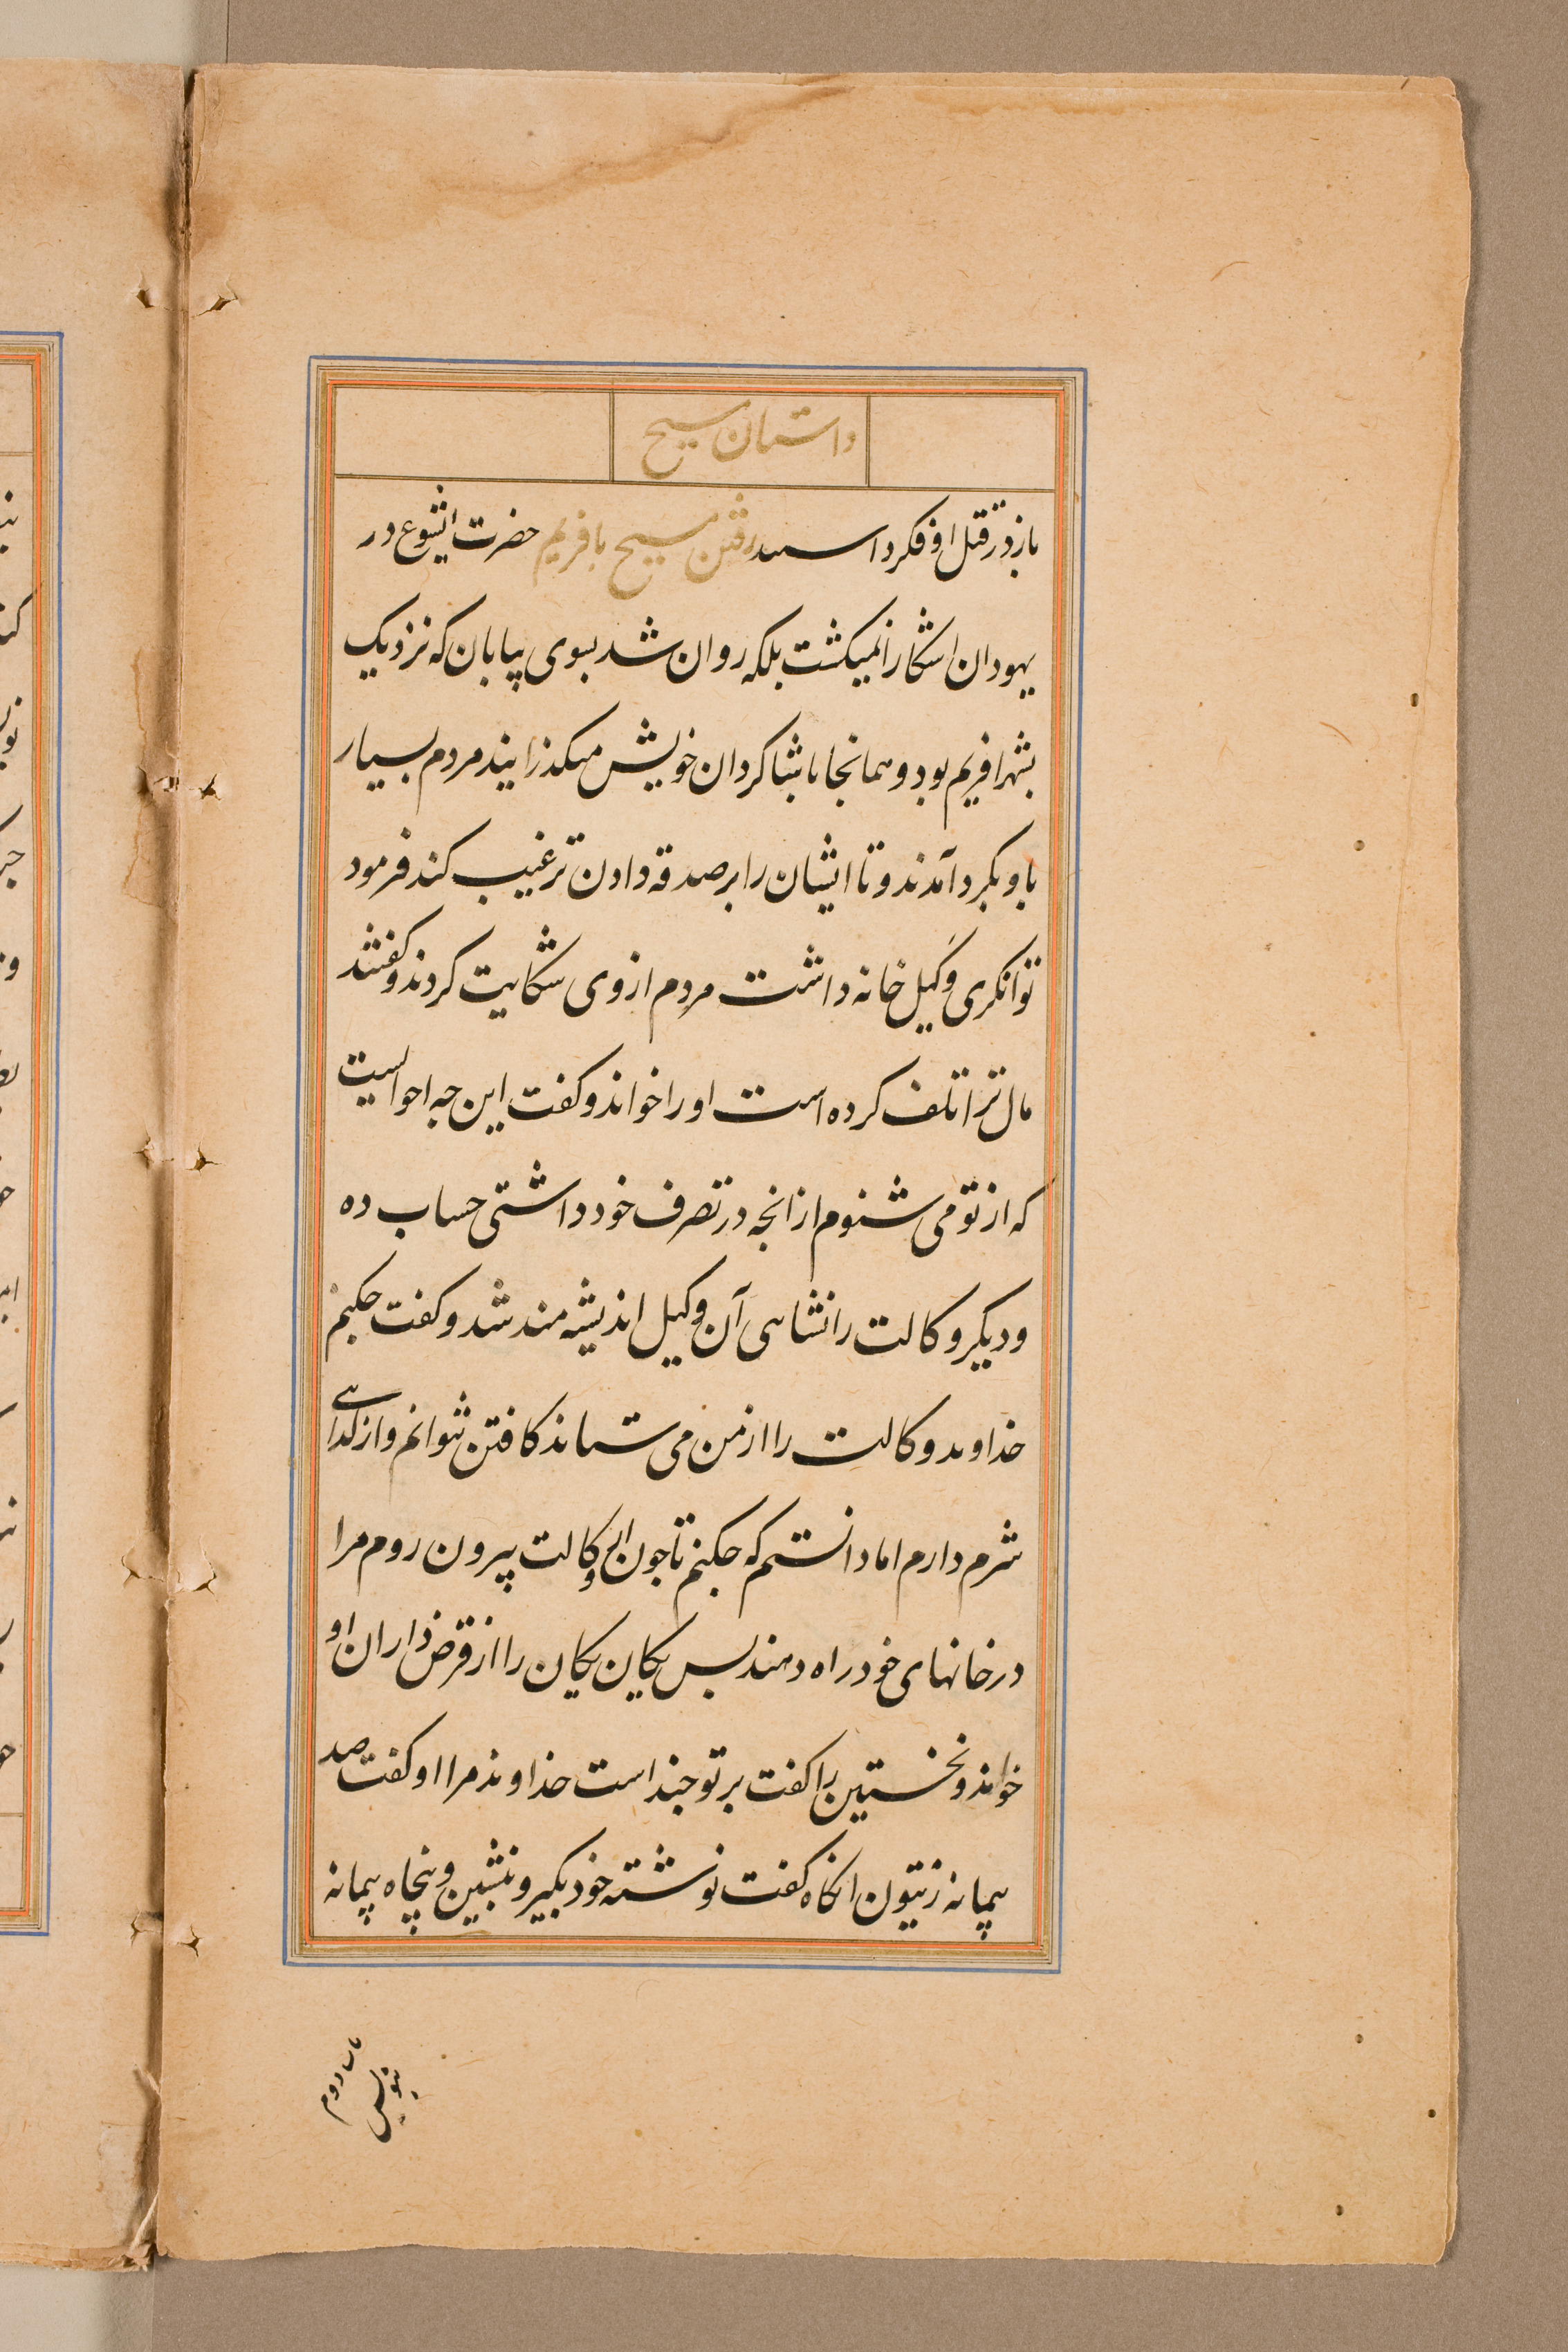 داستان مسیح
باز در قتل او فکر داستند رفتن مسیح بافریم حضرت ایشوع در
یهودان اشکارا نمیکشت بلکه روان شد بسوی بیابان که نزدیک
بشهر افریم بود و همانجا با شاکردان خویش میکذرانید مردم بسیار
باو بکرد آمدند و تا ایشان را بر صدقه دادن ترغیب کند فرمود
توانکری وکیل خانه داشت مردم از وی شکایت کردند و کفتند
مال ترا تلف کرده است او را خواند و کفت این جه احوالیست
که از تو می شنوم از انجه در تصرف خود داشتی حساب ده
و دیکر وکالت را نشاهی آن وکیل اندیشه مند شد و کفت جکنم
خداوند وکالت را از من می ستاند کافتن نتوانم و از کدائی
شرم دارم اما دانستم که جکنم تا جون از وکالت بیرون روم مرا
در خانهای خود راه دهند بس یکان یکان را از قرض داران او
خواند و نخستین را کفت بر تو جند است خداوند مرا او کفت صد
پیمانه زیتون انکاه کفت نوشته خود بکیر و بنشین و پنجاه پیمانه
بنویس
باب دوم